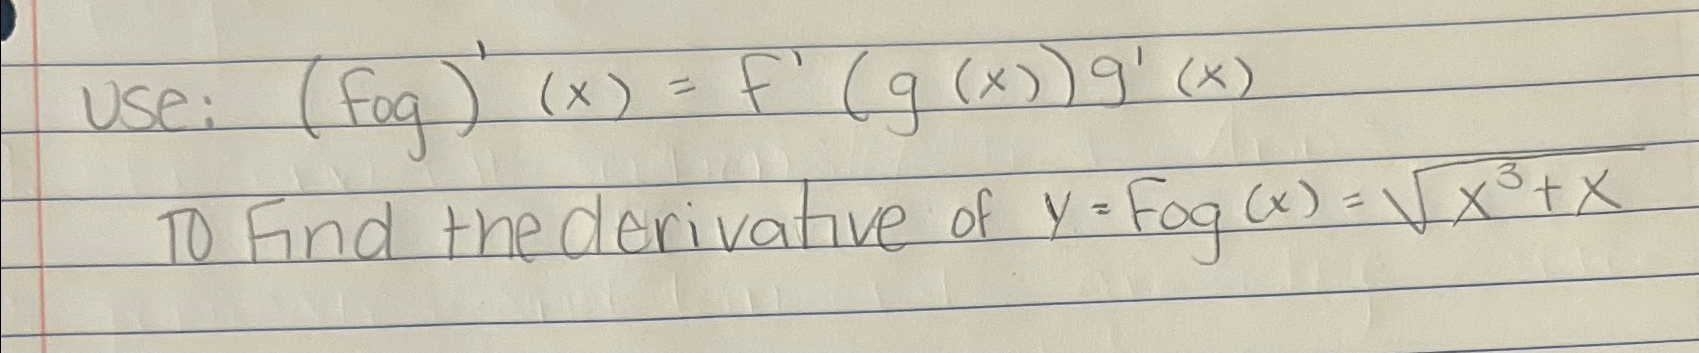 Use: (fog)' (x) = f' (g (x)) g' (x)
To Find the derivative of y = Fog (x) = √x³ + x